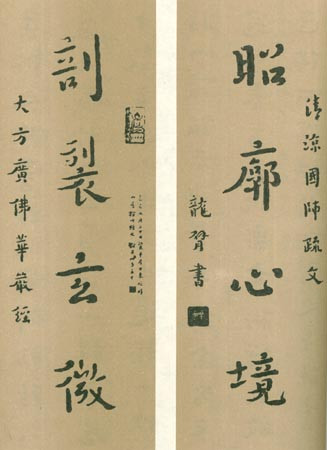 清涼國師疏文
昭廓心境
龍臂書
剖裂玄微
大方廣佛華嚴經